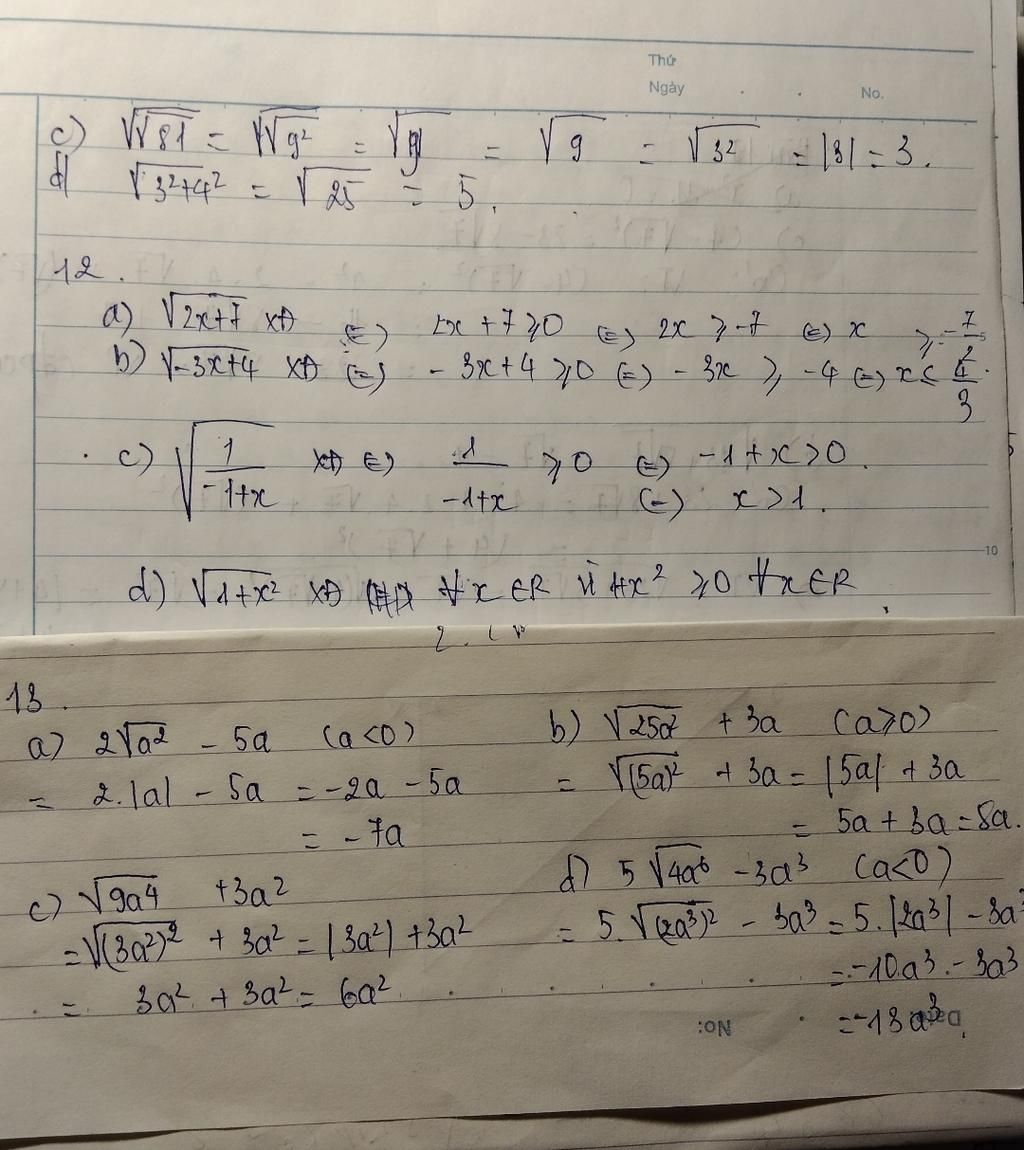 Thứ
Ngày . . No.
c) √√81 = √√9² = √|9| = √9 = √3² = |3| = 3.
d) √3²+4² = √25 = 5.
12.
a) √2x+7 XĐ (=) 2x + 7 ⩾ 0 (=) 2x ⩾ -7 (=) x ⩾ -7/2
b) √-3x+4 XĐ (=) - 3x + 4 ⩾ 0 (=) - 3x ⩾ -4 (=) x ≤ 4/3.
c) √1/-1+x XĐ (=) 1/-1+x ⩾ 0 (=) -1 + x > 0.
(=) x > 1.
10
d) √1+x² XĐ ∀x ∈ R vì 1+x² ⩾ 0 ∀x ∈ R
13.
a) 2√a² - 5a (a < 0)
= 2.|a| - 5a = -2a - 5a
= -7a
b) √25a² + 3a (a ⩾ 0)
= √(5a)² + 3a = |5a| + 3a
= 5a + 3a = 8a.
c) √9a⁴ + 3a²
= √(3a²)² + 3a² = |3a²| + 3a²
= 3a² + 3a² = 6a²
d) 5√4a⁶ - 3a³ (a < 0)
= 5.√(2a³)² - 3a³ = 5.|2a³| - 3a³
= -10a³ - 3a³
= -13a³.
No: